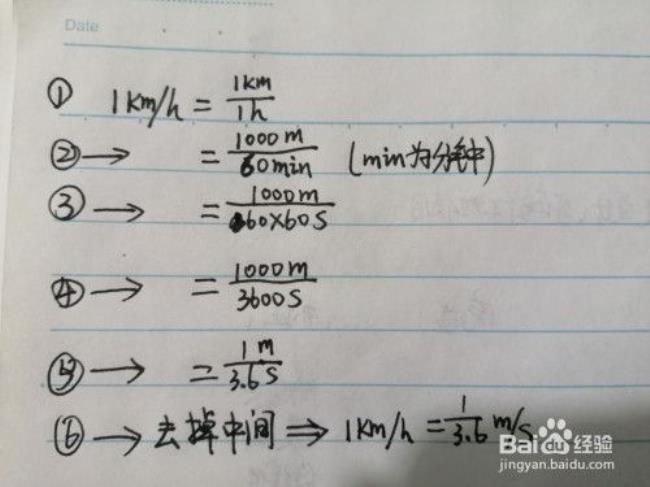 Date
① 1Km/h = 1Km/1h
②→ = 1000m/60min (min为分钟)
③→ = 1000m/60×60S
④→ = 1000m/3600S
⑤→ = 1m/3.6S
⑥→去掉中间⇒1Km/h=1/3.6 m/s
Baidu经验
jingyan.baidu.com